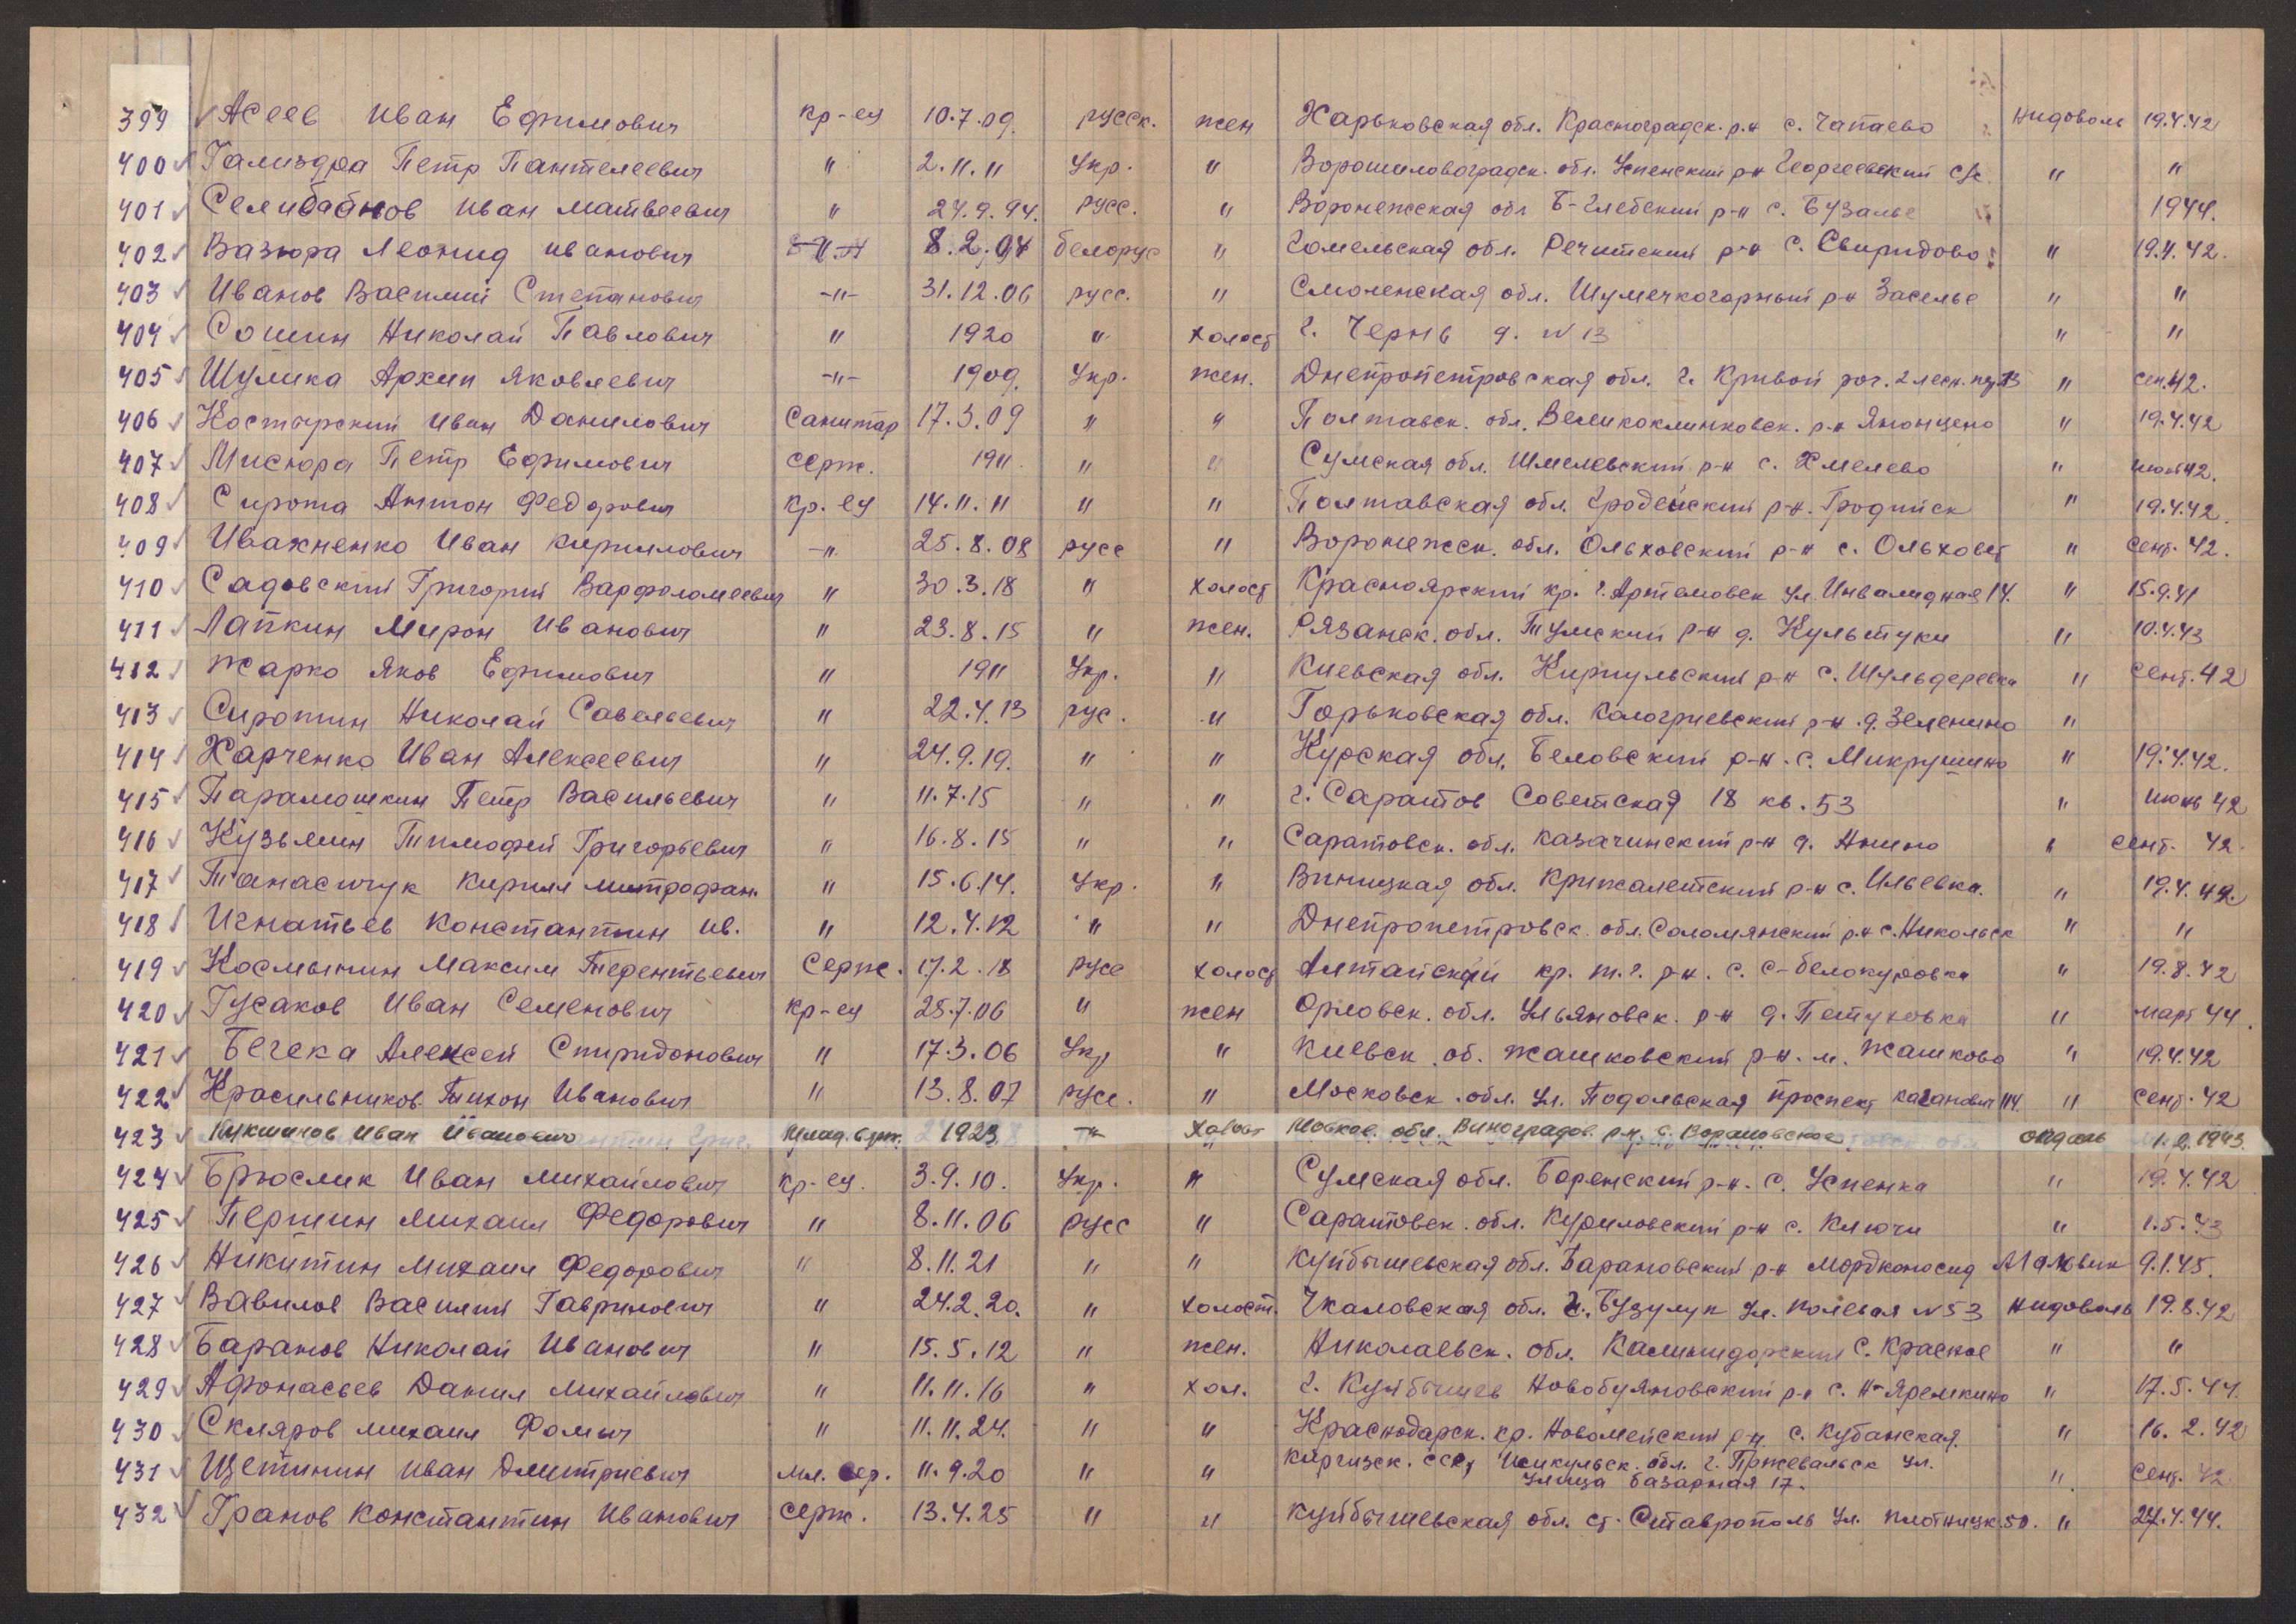 399 Асеев Иван Ефимович кр-ец 10.7.09. русск. жен Харьковская обл. Красноградск. р.н с. Чапаево Нидоволь 19.4.42
400 Гализдра Петр Пантелеевич " 2.11.11 Укр. " Ворошиловоградск. обл. Успенский р-н Георгеевский с/с " "
401 Селибабнов Иван Матвеевич " 24.9.94. русс. " Воронежская обл Б-Глебский р-н с. 1944.
402 Вазюра Леонид Иванович -"- 8.2.04 белорус " Гомельская обл. Речитский р-н с. Свиридово " 19.4.42.
403 Иванов Василий Степанович -"- 31.12.06 русс. " Смоленская обл. р-н Заселье " "
404 Сошин Николай Павлович " 1920 " холост г. Чернь д. N 13 " "
405 Шулика Архип Яковлевич -"- 1909. Укр. жен. Днепропетровская обл. г. Кривой рог. " сен.42.
406 Костырский Иван Данилович Санитар 17.3.09 " " Полтавск. обл. р-н " 19.4.42
407 Мисюра Петр Ефимович серж. 1911. " " Сумская обл. Шмелевский р-н с. Хмелево "
408 Сирота Антон Федорович кр.ец 14.11.11 " " Полтавская обл. р-н. " 19.4.42.
409 Ивахненко Иван Кириллович -" 25.8.08 русс " Воронежск. обл. Ольховский р-н с. " сент. 42.
410 Садовский Григорий Варфоломеевич " 30.3.18 " холост Красноярский кр. г. Артемовск ул. Инвалидная 14. " 15.9.41
411 Лапкин Мирон Иванович " 23.8.15 " жен. Рязанск. обл. Тумский р-н д. Культуки " 10.4.43
412 Жарко Яков Ефимович " 1911 Укр. " Киевская обл. р-н с. " сент. 42
413 Сиротин Николай Савельевич " 22.4.13 рус. " Горьковская обл. Кологриевский р-н. д. Зеленино "
414 Харченко Иван Алексеевич " 24.9.19. " " Курская обл. Беловский р-н. с. " 19.4.42.
415 Парамошкин Петр Васильевич " 11.7.15 " " г. Саратов Советская 18 кв. 53 " июнь 42
416 Кузьмин Тимофей Григорьевич " 16.8.15 " " Саратовск. обл. Казачинский р-н д. Анино " сент. 42.
417 Танасичук Кирилл Митрофан. " 15.6.14. Укр. " Виницкая обл. р-н с. Ильевка. " 19.4.42.
418 Игнатьев Константин Ив. " 12.4.12 " " Днепропетровск. обл. Соломянский р.н с. Никольск " "
419 Космынин Максим Терентьевич Серж. 17.2.18 русс холост Алтайский кр. т.г. р-н. с. С-Белокуровка " 19.8.42
420 Гусаков Иван Семенович кр-ец 25.7.06 " жен Орловск. обл. Ульяновск. р-н д. Петуховка " март 44.
421 Бегека Алексей Спиридонович " 17.3.06 Укр " Киевск. об. Жашковский р-н. м. Жашково " 19.4.42
422 Красильников Тихон Иванович " 13.8.07 русс. " Московск. обл. ул. Подольская проспект Каганович 114. " сент. 42
423 Кукшинов Иван Иванович 1923 -"- Холост Москов. обл. Виноградов. р-н, с. 1943.
424 Брюслик Иван Михайлович кр-ец. 3.9.10. Укр. " Сумская обл. р-н. с. Успенка " 19.4.42
425 Першин Михаил Федорович " 8.11.06 русс " Саратовск. обл. Куриловский р-н с. Ключи " 1.5.43
426 Никитин Михаил Федорович " 8.11.21 " " Куйбышевская обл. Барановский р-н Мальвик 9.1.45.
427 Вавилов Василий Гаврилович " 24.2.20. " холост. Чкаловская обл. г. Бузулук ул. Полевая N 53 Нидоволь 19.8.42
428 Баранов Николай Иванович " 15.5.12 " жен. Николаевск. обл. Калининдорский с. Красное " "
429 Афонасьев Данил Михайлович " 11.11.16 " хол. г. Куйбышев Новобуяновский р-н с. Н-Яремкино " 17.5.44.
430 Скляров Михаил Фомич " 11.11.24. " " Краснодарск. кр. р-н с. Кубанская. " 16.2.42
431 Щетинин Иван Дмитриевич мл. сер. 11.9.20 " " Киргизск. ССР, Исикульск. обл. г. Пржевальск ул.
Улица Базарная 17. " сент. 42
432 Гранов Константин Иванович серж. 13.4.25 " " Куйбышевская обл. ст. Ставрополь ул. 50. " 27.4.44.